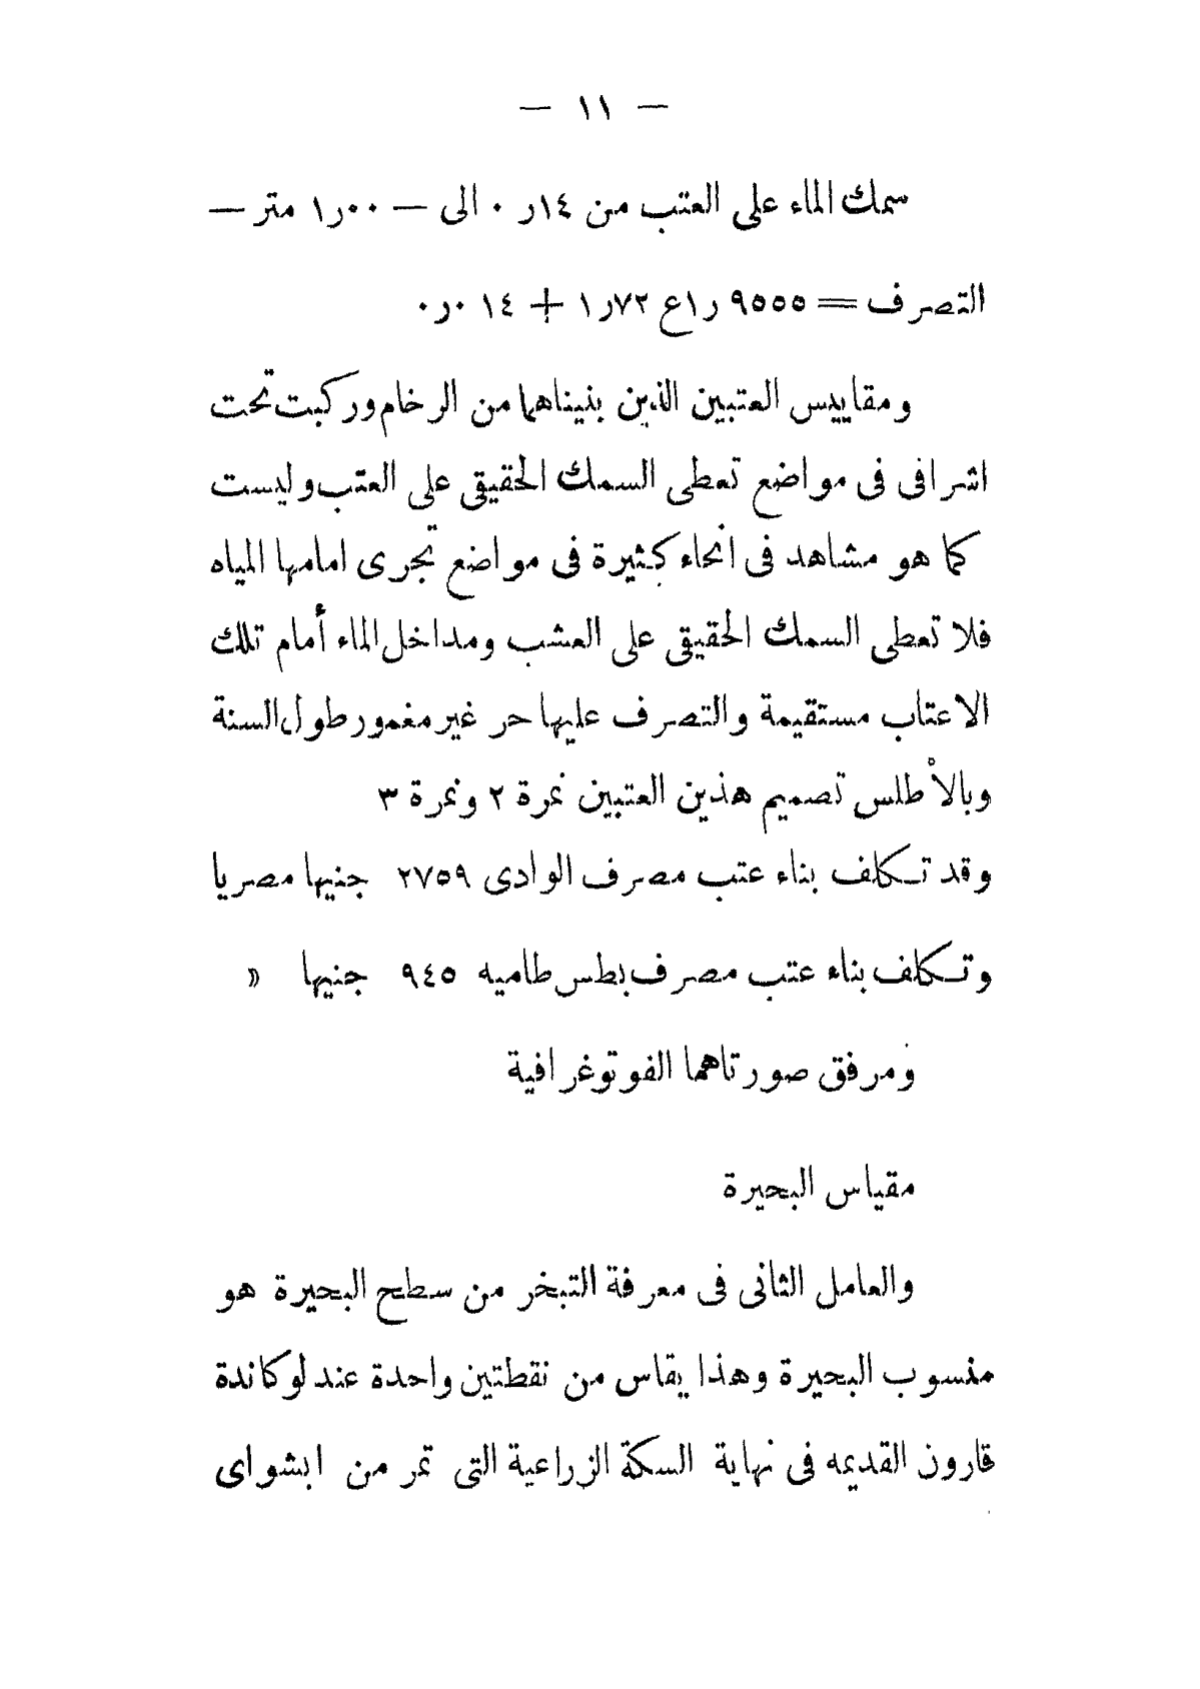 — ١١ —
سمك الماء على العتب من ١٤ر٠ الى — ٠٠ر١ متر —
التصرف = ٩٥٥٥ ر١ع ٧٢ر١ + ١٤ ٠ر٠
ومقاييس العتبين الذين بنيناهما من الرخام وركبت تحت
اشرافى فى مواضع تعطى السمك الحقيقى على العتب وليست
كما هو مشاهد فى انحاء كثيرة فى مواضع تجرى امامها المياه
فلا تعطى السمك الحقيقى على العشب ومداخل الماء أمام تلك
الاعتاب مستقيمة والتصرف عليها حر غير مغمور طول السنة
وبالأطلس تصميم هذين العتبين نمرة ٢ ونمرة ٣
وقد تكلف بناء عتب مصرف الوادى ٢٧٥٩ جنيها مصريا
وتكلف بناء عتب مصرف بطس طاميه ٩٤٥ جنيها »
ومرفق صورتاهما الفوتوغرافية
مقياس البحيرة
والعامل الثانى فى معرفة التبخر من سطح البحيرة هو
منسوب البحيرة وهذا يقاس من نقطتين واحدة عند لوكاندة
قارون القديمه فى نهاية السكة الزراعية التى تمر من ابشواى